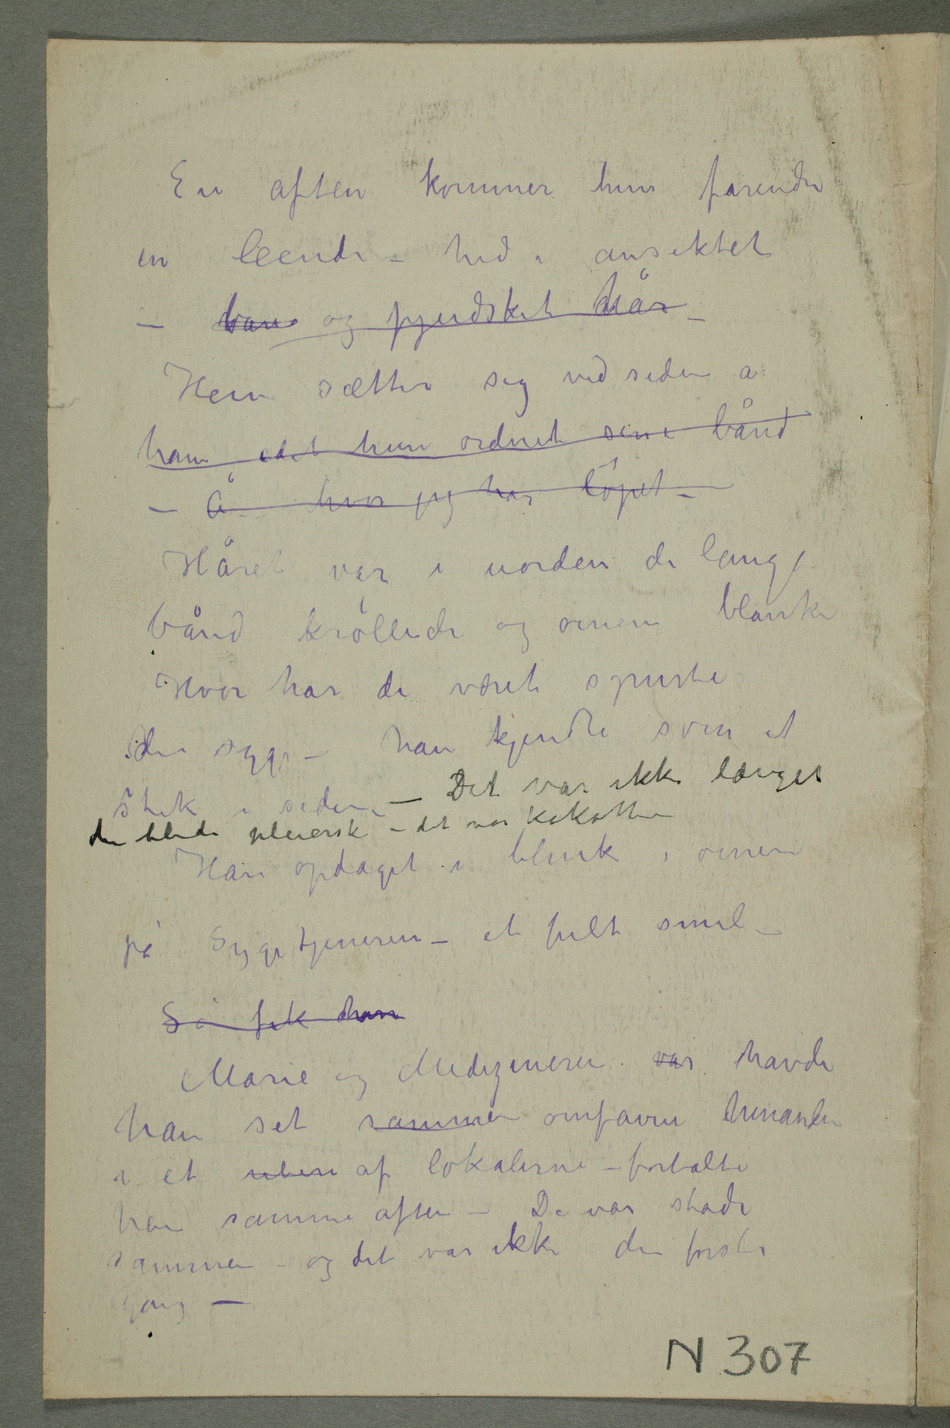 En aften kommer hun farende
en leende – hed i ansiktet
– bare og pjusket hår –
Hun sætter sig ved siden a
ham idet hun ordnet sine bånd
– Å hvor jeg har løpet –
Håret var i uorden de lange
bånd krøllede og øinene blanke
Hvor har de været spurte
den syge – han kjendte som et
stik i siden – Det var ikke længer
den blide pleierske – det var kokotten
Han opdaget i blink i øinene
på Sygetjeneren – et fult smil –
Så fik han
Marie og Medezineren var havde
han set sammen omfavne hinanden
i et af lokalerne – fortalte
han samme aften – De var stadi
sammen – og det var ikke den første
gang –
N 307